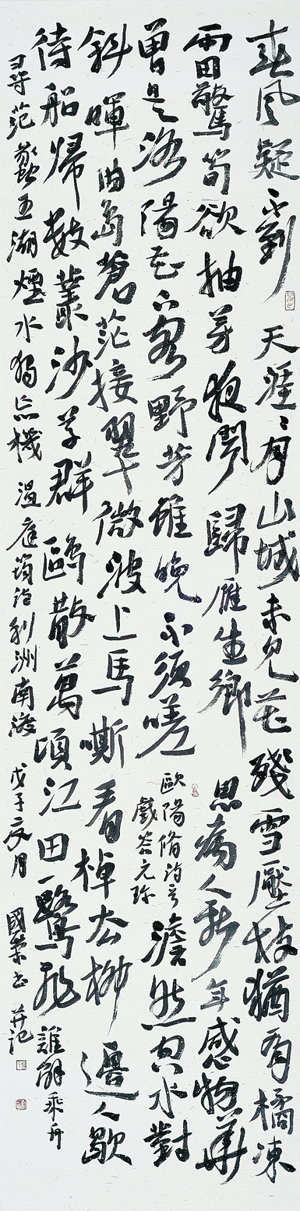 春風疑不到天涯二月山城未見花殘雪壓枝猶有橘凍
雷驚筍欲抽芽夜聞歸雁生鄉思病入新年感物華
曾是洛陽花下客野芳雖晚不須嗟
歐陽脩詩
戲答元珍
澹然空水對
斜暉曲島蒼茫接翠微波上馬嘶看棹去柳邊人歇
待船歸數叢沙草群鷗散萬頃江田一鷺飛誰解乘舟
尋范蠡五湖煙水獨忘機溫庭筠詩利洲南渡戊子夏月國書并記